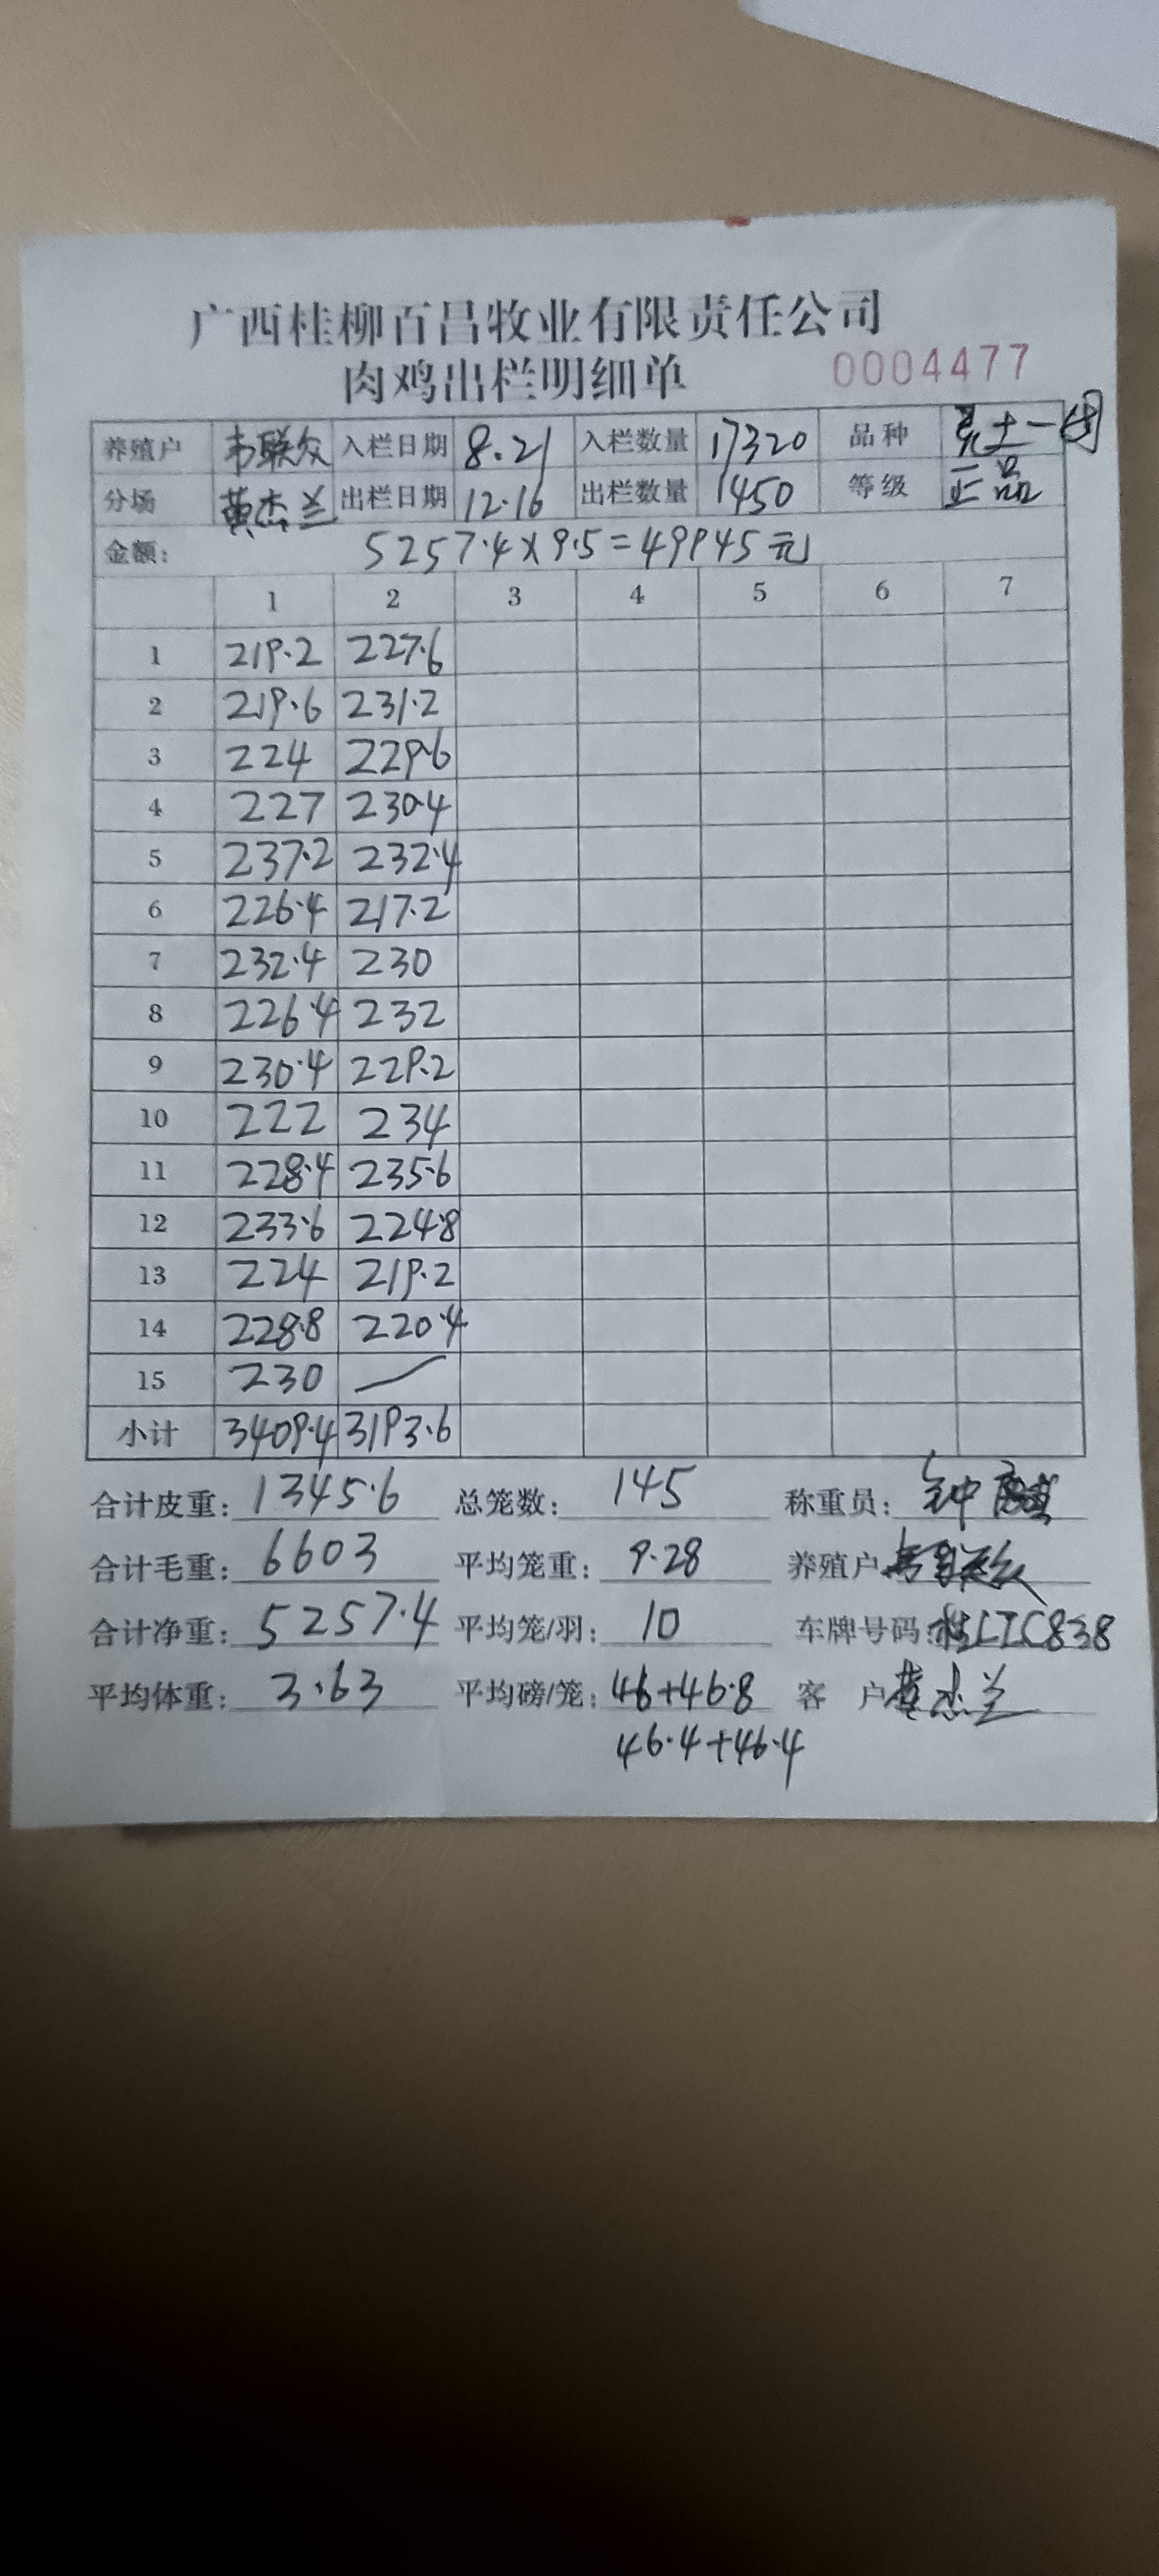 广西桂柳百昌牧业有限责任公司
肉鸡出栏明细单 0004477
养殖户 韦联众 入栏日期 8.21 入栏数量 17320 品种 土一
分场 黄杰兰 出栏日期 12.16 出栏数量 1450 等级 正品
金额: 5257.4×9.5=49945元
1 2 3 4 5 6 7
1 219.2 227.6
2 219.6 231.2
3 224 229.6
4 227 230.4
5 237.2 232.4
6 226.4 217.2
7 232.4 230
8 226.4 232
9 230.4 229.2
10 222 234
11 228.4 235.6
12 233.6 224.8
13 224 219.2
14 228.8 220.4
15 230 —
小计 3409.4 3193.6
合计皮重: 1345.6 总笼数: 145 称重员: 钟
合计毛重: 6603 平均笼重: 9.28 养殖户
合计净重: 5257.4 平均笼/羽: 10 车牌号码: 桂LTC838
平均体重: 3.63 平均磅/笼: 46+46.8 客 户 黄杰兰
46.4+46.4